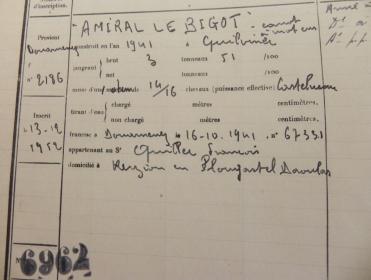 d'inscription.
"AMIRAL LE BIGOT" canot
Provient Douarnenez construit en l'an 1941 à Guilvinec à moteur
jaugeant brut 3 tonneaux 51 /100
N° 2186 net tonneaux /100
14/16 chevaux (puissance effective)
tirant d'eau chargé mètres centimètres.
Inscrit non chargé mètres centimètres.
13-12 francisé à Douarnenez le 16-10-1941 n° 67331
1952 appartenant au Sr Quittec François
domicilié à en Plougastel Daoulas
N° 6962